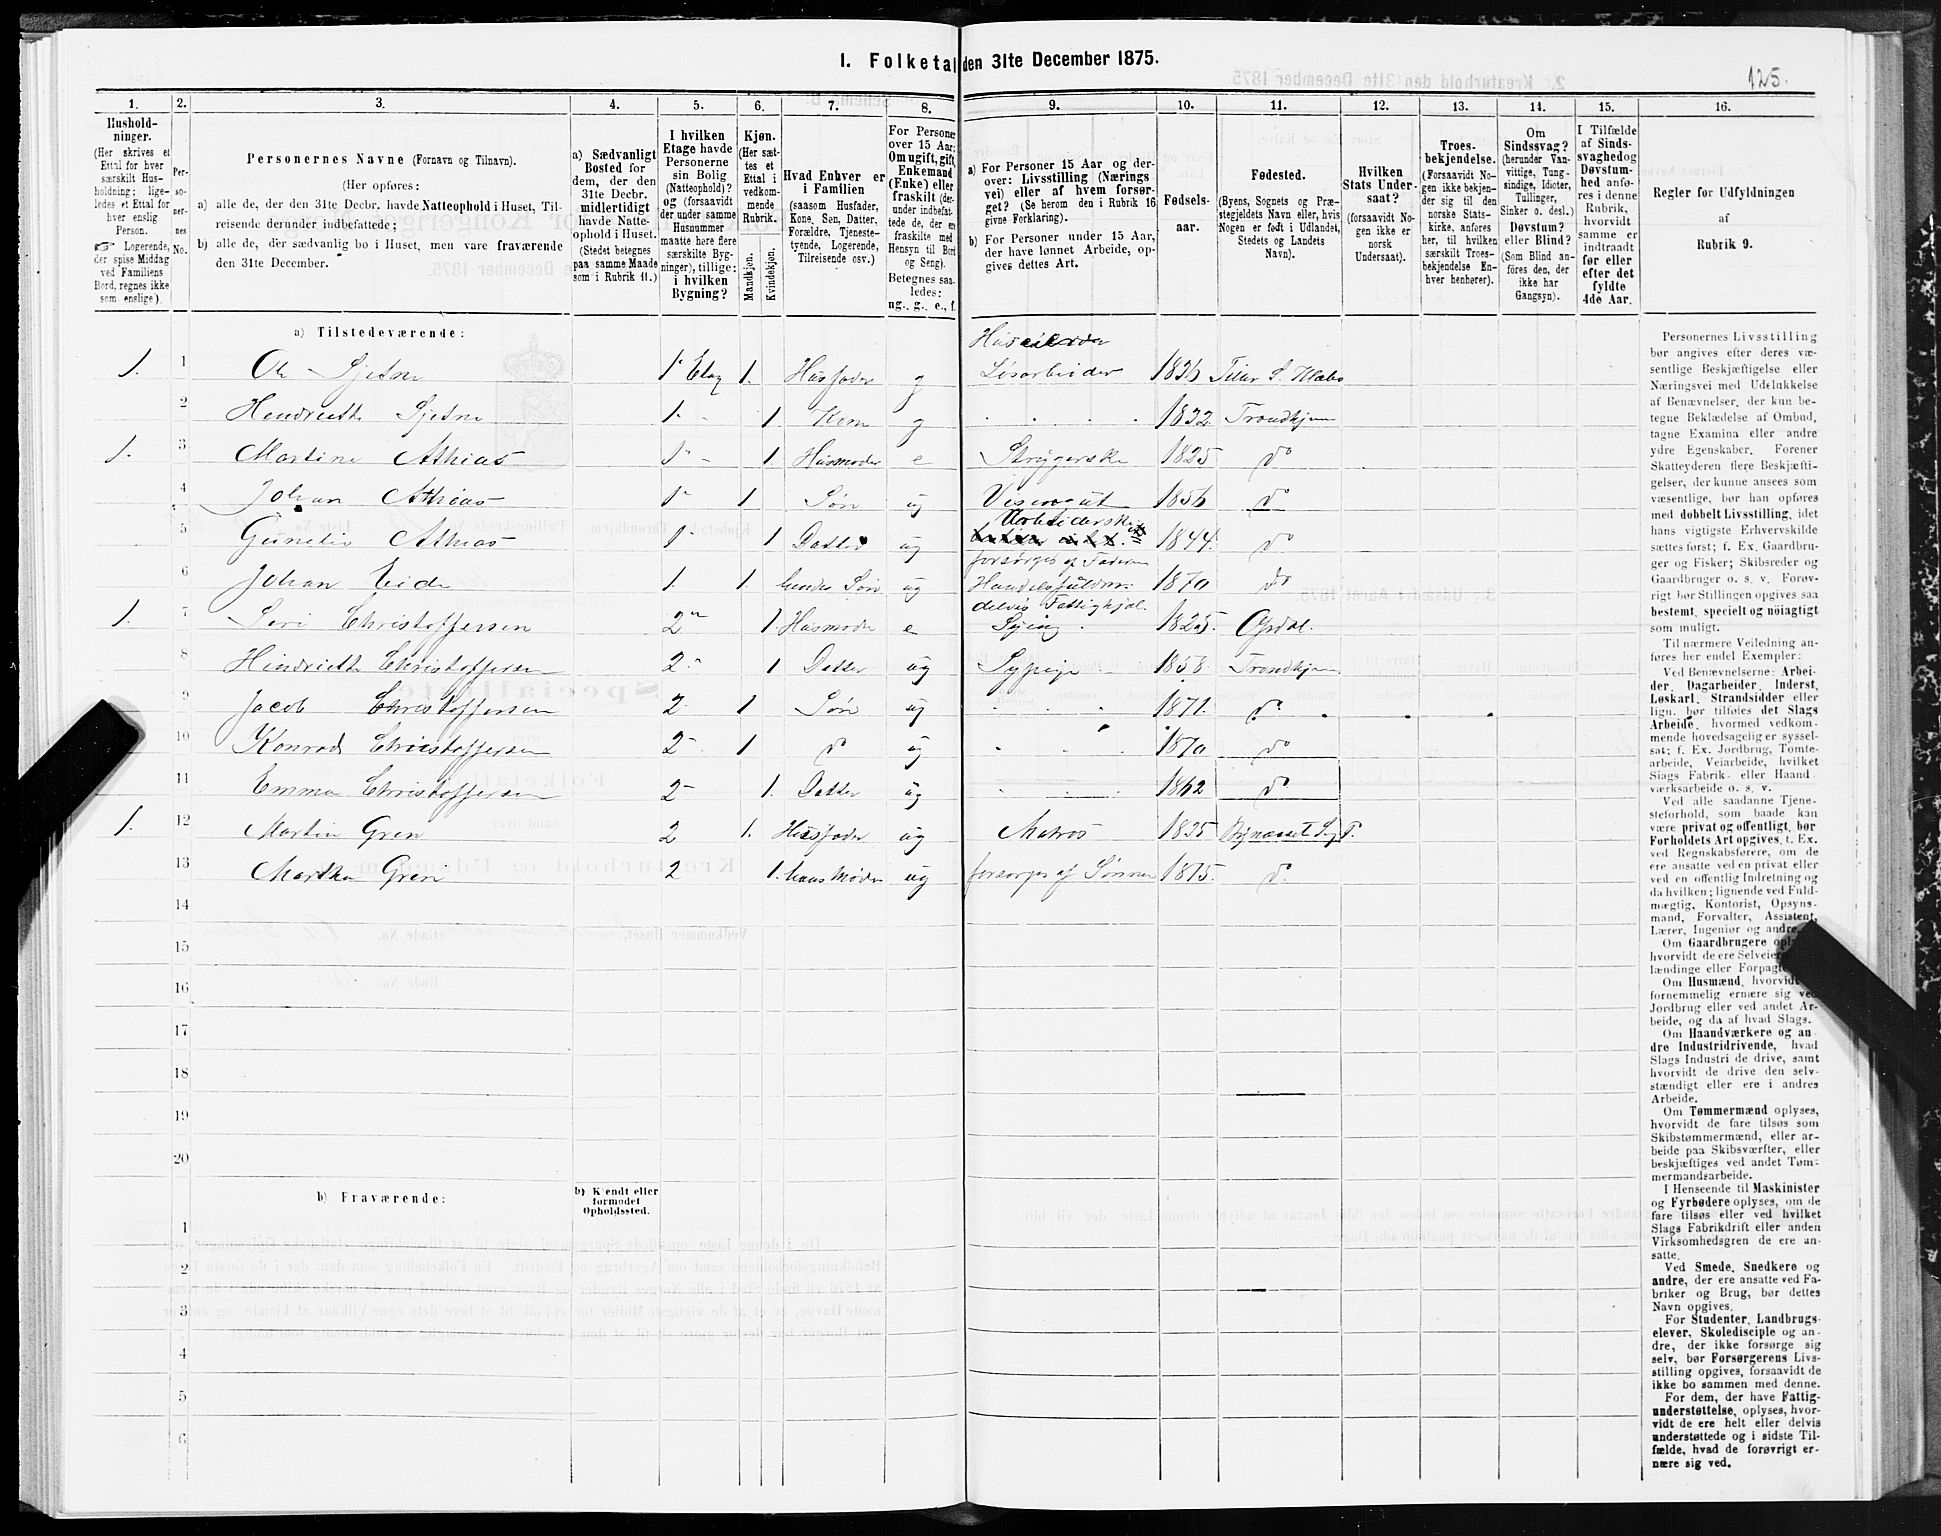 I. Folketal den 31te December 1875.
125.
1. 2. 3. 4. 5. 6. 7. 8. 9. 10. 11. 12. 13. 14. 15. 16.
Hushold-
ninger.
(Her skrives et
Ettal for hver
særskilt Hus-
holdning; lige-
ledes et Ettal for
hver enslig
Person.
☞ Logerende,
der spise Middag
ved Familiens
Bord, regnes ikke
som enslige).
Per-
so-
ner-
nes
No.
Personernes Navne (Fornavn og Tilnavn).
(Her opføres:
a) alle de, der den 31te Decbr. havde Natteophold i Huset, Til-
reisende derunder indbefattede;
b) alle de, der sædvanlig bo i Huset, men vare fraværende
den 31te December.
a) Sædvanligt
Bosted for
dem, der den
31te Decbr.
midlertidigt
havde Natte-
ophold i Huset.
(Stedet betegnes
paa samme Maade
som i Rubrik 11.)
I hvilken
Etage havde
Personerne
sin Bolig
(Natteophold)?
og (forsaavidt
der under samme
Husnummer
maatte høre flere
særskilte Byg-
ninger), tillige:
i hvilken
Bygning?
Kjøn.
(Her sæt-
tes et
Ettal i
vedkom-
mende
Rubrik.
Mandkjøn.
Kvindekjøn.
Hvad Enhver er
i Familien
(saasom Husfader,
Kone, Søn, Datter,
Forældre, Tjeneste-
tyende, Logerende,
Tilreisende osv.)
For Personer
over 15 Aar;
Om ugift, gift,
Enkemand
(Enke) eller
fraskilt (der-
under indbefat-
tede de, der ere
fraskilte med
Hensyn til Bord
og Seng).
Betegnes saa-
ledes:
ug., g., e., f.
a) For Personer 15 Aar og der-
over: Livsstilling (Nærings
vei) eller af hvem forsør-
get? (Se herom den i Rubrik 16
givne Forklaring).
b) For Personer under 15 Aar,
der have lønnet Arbeide, op-
gives dettes Art.
Fødsels-
aar.
Fødested.
(Byens, Sognets og Præ-
stegjeldets Navn eller, hvis
Nogen er født i Udlandet,
Stedets og Landets
Navn).
Hvilken
Stats Under-
saat?
(forsaavidt No-
gen ikke er
norsk
Undersaat).
Troes-
bekjendelse.
(Forsaavidt No-
gen ikke bekjen-
der sig til den
norske Stats-
kirke, anføres
her, til hvilken
særskilt Troes-
bekjendelse En-
hver henhører).
Om
Sindssvag?
(herunder Van-
vittige, Tung-
sindige, Idioter,
Tullinger,
Sinker o. desl.)
Døvstum?
eller Blind?
(Som Blind an-
føres den, der
ikke har
Gangsyn).
I Tilfælde
af Sinds-
svaghed og
Døvstum-
hed anfø-
res i denne
Rubrik,
hvorvidt
samme er
indtraadt
før eller
efter det
fyldte
4de Aar.
Regler for Udfyldningen
af
Rubrik 9.
a) Tilstedeværende:
Huseier
1. 1 Ole Sjetne 1ˢ Etag 1. Husfader g Løsarbeider 1836 Tiller S. Klæbo
2 Hendriette Sjetne 1. 1 Kone g 1832 Trondhjem
1. 3 Martine Athias 1 1. Husmoder e Strygerske 1825 do
4 Johan Athias 1 1 Søn ug Visergut 1856 do
Arbeiderske
5 Athias 1 1 Datter ug 1844. do
forsørges af Faderen
6 Johan Eide 1. 1. hendes Søn ug Handelsfuldm. 1870 do
delvis Fattighjel.
1. 7 Siri Christoffersen 2 1. Husmoder e Sying 1825. Opdal.
8 Hindriette Christoffersen 2 1 Datter ug Sypige 1858. Trondhjem
9 Jacob Christoffersen 2 1 Søn ug 1871. do
10 Konrad Christoffersen 2 1 do ug 1870 do
11 Emma Christoffersen 2 1. Datter ug 1862 do
1. 12 Martin Gren 2 1. Husfader ug Matros 1835 Bynæsset
13 Martha Gren 2 1. hans Moder ug forsørges af Sønnen do
14
15
16
17
18
19
20
b) Fraværende:
b) Kjendt eller
formodet
Opholdssted.
1
2
3
4
5
6
Personernes Livsstilling
bør angives efter deres væ-
sentlige Beskjæftigelse eller
Næringsvei med Udelukkelse
af Benævnelser, der kun be-
tegne Beklædelse af Ombud,
tagne Examina eller andre
ydre Egenskaber. Forener
Skatteyderen flere Beskjæfti-
gelser, der kunne ansees som
væsentlige, bør han opføres
med dobbelt Livsstilling, idet
hans vigtigste Erhvervskilde
sættes først; f. Ex. Gaardbru-
ger og Fisker; Skibsreder og
Gaardbruger o. s. v. Forøv-
rigt bør Stillingen opgives saa
bestemt, specielt og nöiagtigt
som muligt.
Til nærmere Veiledning an-
føres her endel Exempler:
Ved Benævnelserne: Arbei-
der, Dagarbeider, Inderst,
Løskarl, Strandsidder eller
lign. bør tilføies det Slags
Arbeide, hvormed vedkom-
mende hovedsagelig er syssel-
sat; f. Ex. Jordbrug, Tømte-
arbeide, Veiarbeide, hvilket
Slags Fabrik- eller Haand-
værksarbeide o. s. v.
Ved alle saadanne Tjene-
steforhold, som baade kan
være privat og offentligt, bør
Forholdets Art opgives, t. Ex.
ved Regnskabsførere, om de
ere ansatte ved en privat eller
ved en offentlig Indretning og
da hvilken; lignende ved Fuld-
mægtig, Kontorist, Opsyns-
mand, Forvalter, Assistent,
Lærer, Ingeniør og andre.
Om Gaardbrugere oplyses,
hvorvidt de ere Selveiere,
lændinge eller Forpagtere.
Om Husmænd, hvorvidt de
fornemmelig ernære sig ved
Jordbrug eller ved andet Ar-
beide, og da af hvad Slags.
Om Haandværkere og an-
dre Industridrivende, hvad
Slags Industri de drive, samt
hvorvidt de drive den selv-
stændigt eller ere i andres
Arbeide.
Om Tømmermænd oplyses,
hvorvidt de fare tilsøs som
Skibstømmermænd, eller ar-
beide paa Skibsværfter, eller
beskjæftiges ved andet Tøm-
mermandsarbeide.
I Henseende til Maskinister
og Fyrbødere oplyses, om de
fare tilsøs eller ved hvilket
Slags Fabrikdrift eller anden
Virksomhedsgren de ere an-
satte.
Ved Smede, Snedkere og
andre, der ere ansatte ved Fa-
briker og Brug, bør dettes
Navn opgives.
For Studenter, Landbrugs-
elever, Skoledisciple og an-
dre, der ikke forsørge sig
selv, bør Forsørgerens Livs-
stilling opgives, forsaavidt de
ikke bo sammen med denne.
For dem, der have Fattig-
understøttelse, oplyses, hvor-
vidt de ere helt eller delvis
understøttede og i sidste Til-
fælde, hvad de forøvrigt er-
nære sig ved.